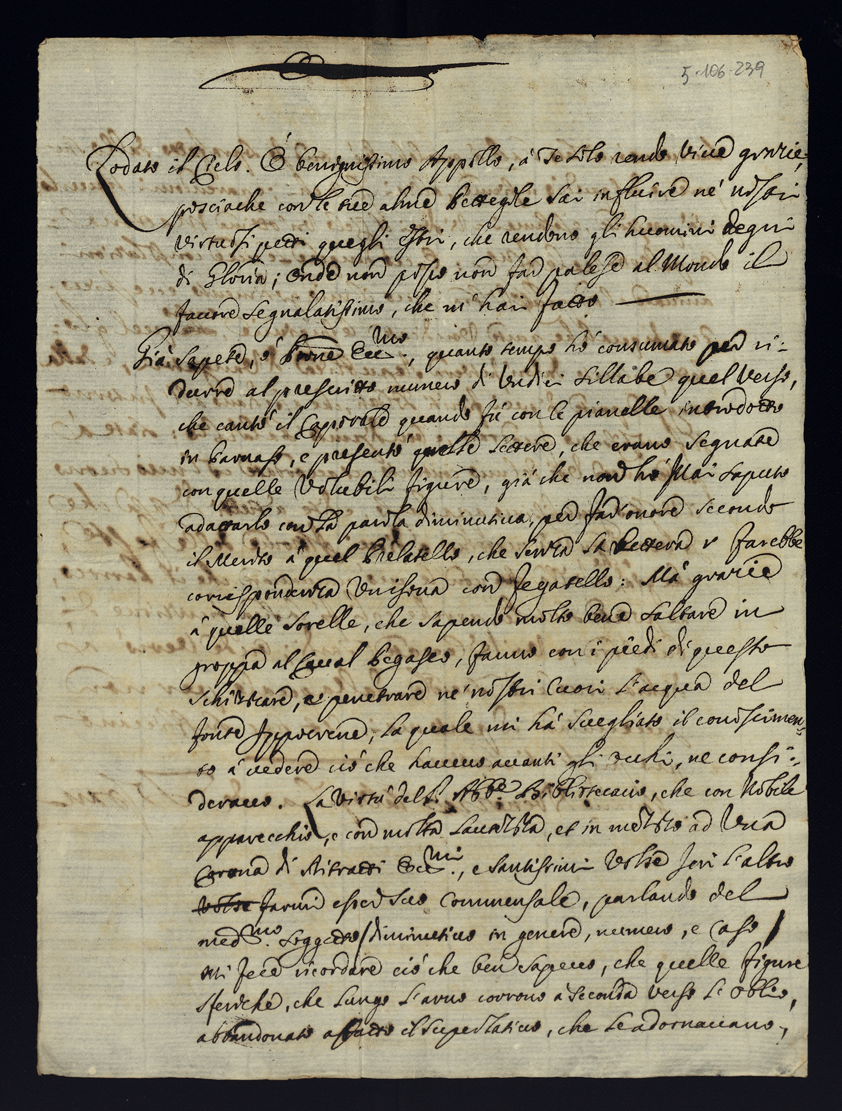 5-106-239
Lodato il Cielo. Ò benignissimo Appollo, à Te solo rendo vive grazie,
posciache con le tue alme Bettegole sai influire ne' nostri
virtuosi petti quegli Estri, che rendono gli huomini degni
di Gloria; onde non posso non far palese al Mondo il
favore segnalatissimo, che m'hai fatto
Già sapete, ò Prone Ecc.mo, quanto tempo hò consumato per ri-
durre al prescritto numero di Undici sillabe quel verso,
che cantò il Caporale quando fù con le pianelle introdotto
in Parnaso, e presentò quelle lettere, che erano segnate
con quelle volubili figure, già che non hò Mai saputo
adattarlo con la parola diminutiva, per far onore secondo
il Merito à quel Prelatello, che senza la lettera r farebbe
corrispondenza Unisona con fegatello: Mà grazie
à quelle sorelle, che sapendo molto bene saltare in
groppa al Caval Pegaseo, fanno con i piedi di questo
schizzare, e penetrare ne' nostri Cuori l'acqua del
fonte Ippocrene, la quale mi hà svegliato il conoscimen=
to à vedere ciò che havevo avanti gli occhi, ne consi=
deravo. La virtù del S.r Abb.e Bibliotecario, che con Nobile
apparecchio, e con molta lautezza, et in mezzo ad Una
Corona di Ritratti Ecc.mi, e Santissimi volse jeri l'altro
volse farmi esser suo Commensale, parlando del
med.mo soggetto / diminutivo in genere, numero, e Caso /
mi fece ricordare ciò che ben sapevo, che quelle figure
sferiche, che lungo l'Arno corrono à seconda verso l'oblio,
abbandonato affatto il superlativo, che le adornavano,